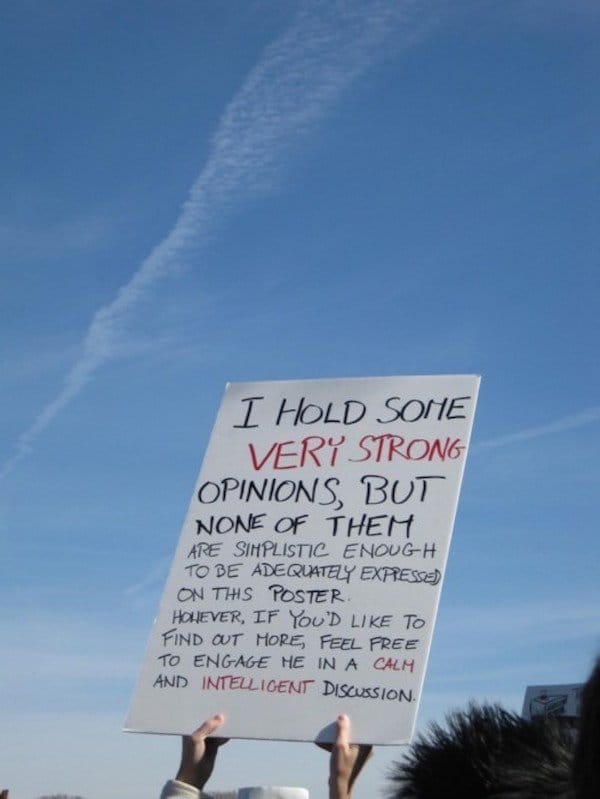 I HOLD SOME
VERY STRONG
OPINIONS, BUT
NONE OF THEM
ARE SIMPLISTIC ENOUGH
TO BE ADEQUATELY EXPRESSED
ON THIS POSTER.
HOWEVER, IF YOU'D LIKE TO
FIND OUT MORE, FEEL FREE
TO ENGAGE ME IN A CALM
AND INTELLIGENT DISCUSSION.